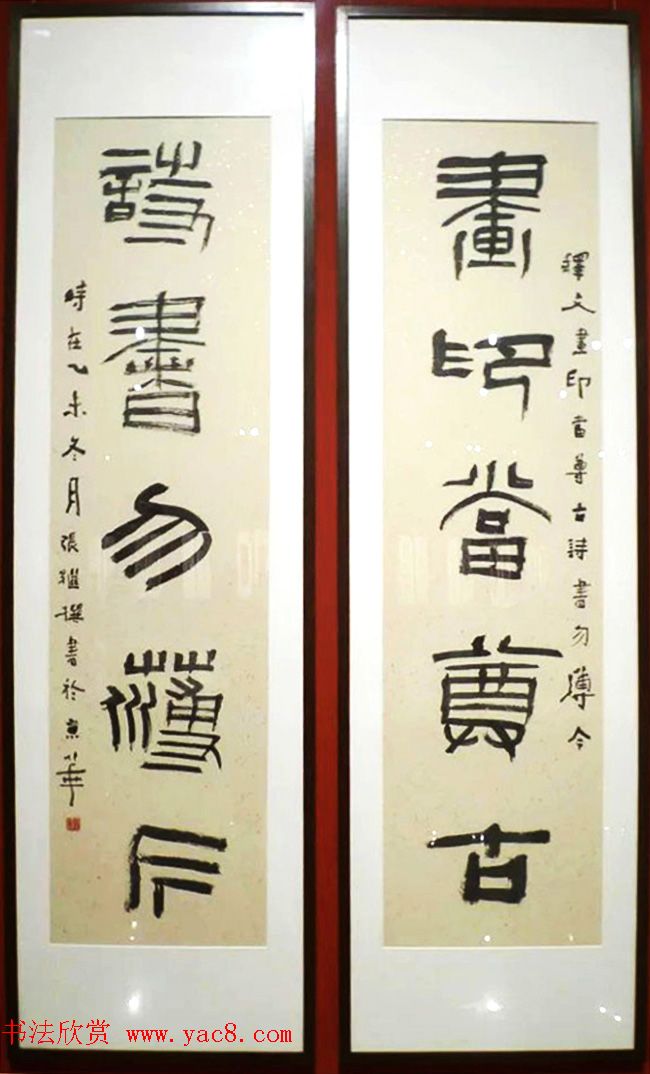 畫印當尊古
釋文畫印當尊古詩書勿薄今
詩書勿薄今
時在乙未冬月張繼撰書於京華
书法欣赏 www.yac8.com